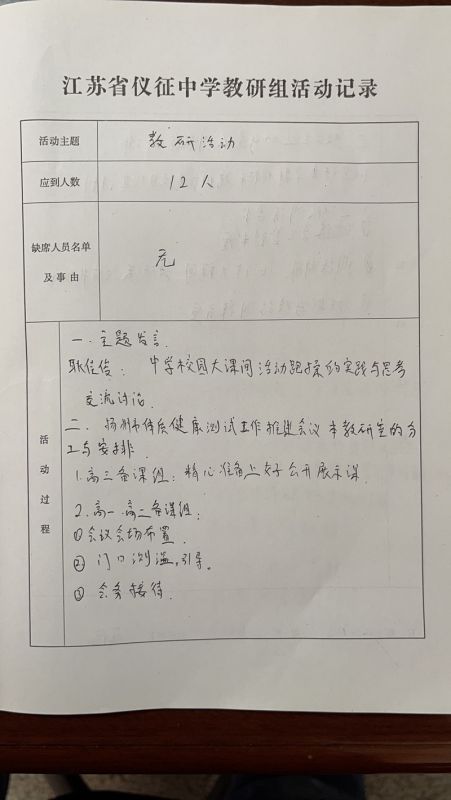 江苏省仪征中学教研组活动记录
活动主题 教研活动
应到人数 12人
缺席人员名单
及事由 无
活动过程
一.主题发言.
耿俊: 中学校园大课间活动跑操的实践与思考
交流讨论.
二. 扬州市体质健康测试工作推进会议 本教研室的分
工与安排.
1.高三备课组: 精心准备上好公开展示课.
2.高一.高二备课组:
①会议会场布置.
②门口测温,引导。
③会务接待.